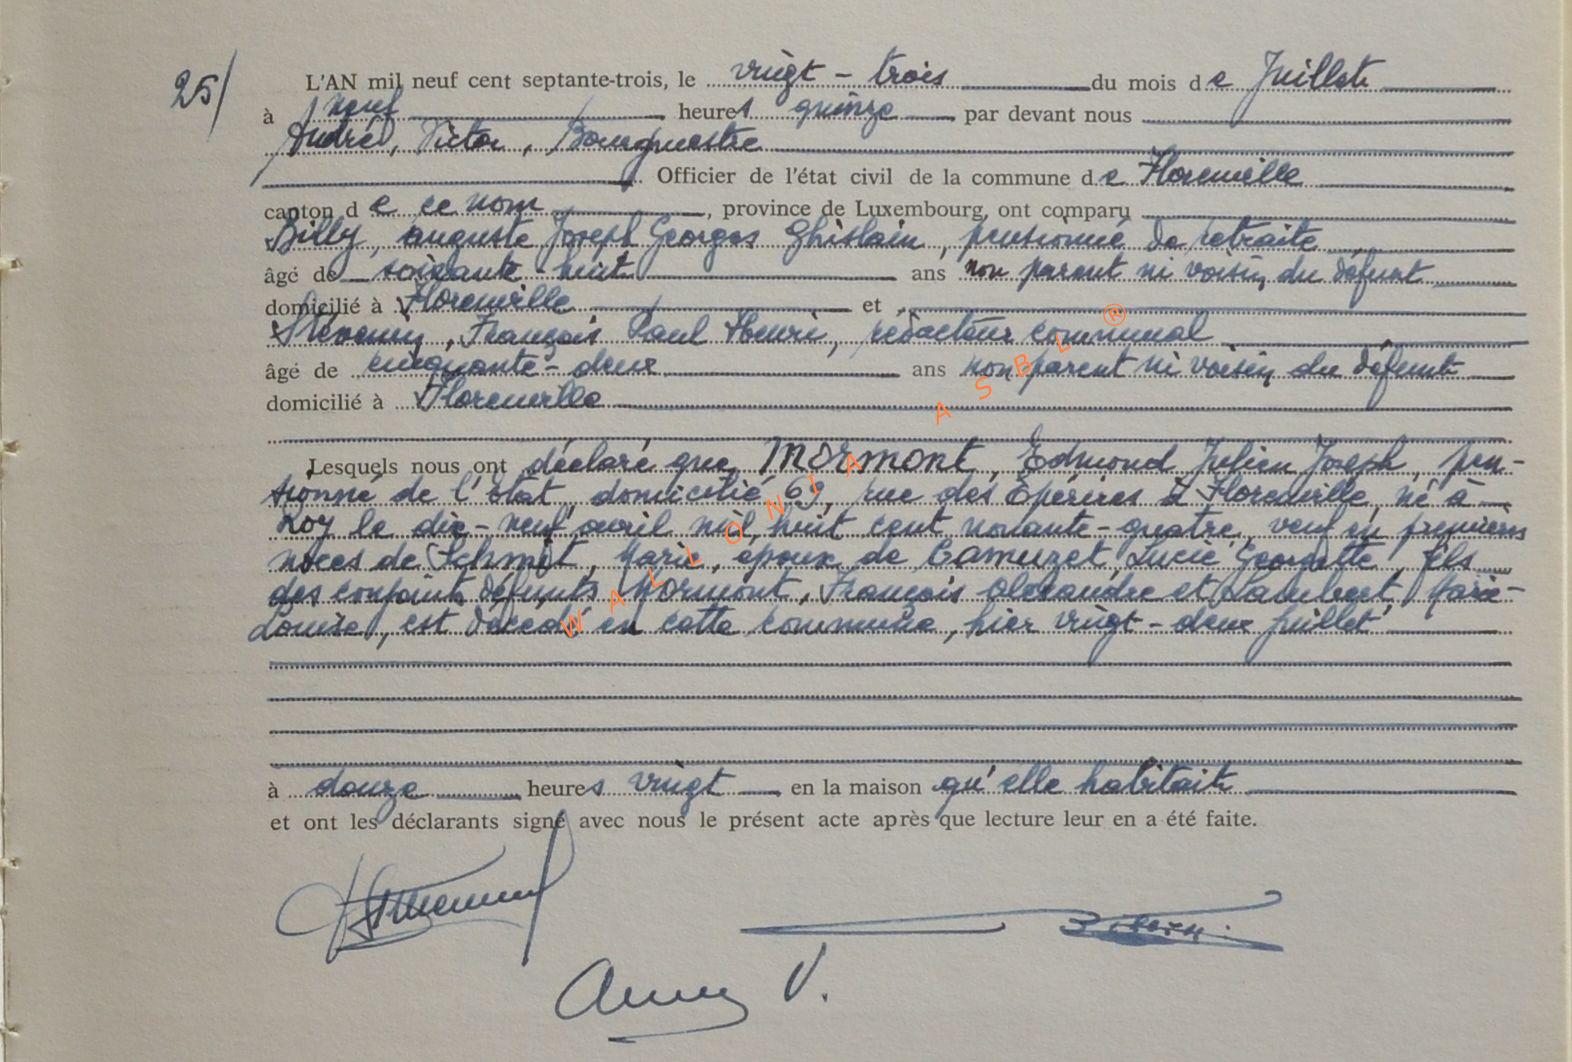 25/ L'AN mil neuf cent septante-trois, le vingt - trois du mois de Juillet
à neuf heures quinze par devant nous
André, Victor, Bourgmestre
Officier de l'état civil de la commune de Florenville
canton de ce nom, province de Luxembourg, ont comparu
Billy, Auguste Joseph Georges Ghislain, pensionné de retraite
âgé de soixante-huit ans non parent ni voisin du défunt
domicilié à Florenville et
Stévenin, François Paul Henri, rédacteur communal
âgé de cinquante-deux ans non parent ni voisin du défunt
domicilié à Florenville
Lesquels nous ont déclaré que Mormont, Edmond Julien Joseph, pen-
sionné de l'Etat, domicilié 69, rue des Epérires à Florenville, né à
Roy le dix-neuf avril mil huit cent nonante-quatre, veuf en premières
noces de Schmit, Marie, époux de Camuzet, Lucie Georgette, fils
des conjoints défunts Mormont, François Alexandre et Lambert, Marie-
Louise, est décédé en cette commune, hier vingt-deux juillet
à douze heures vingt en la maison qu'elle habitait
et ont les déclarants signé avec nous le présent acte après que lecture leur en a été faite.
V.
WALLONIA ASBL ®